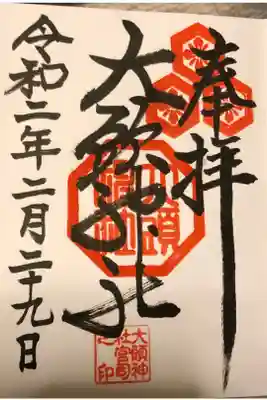 奉拝
大頭神社
令和二年二月二十九日
大頭神
社宮司
之印